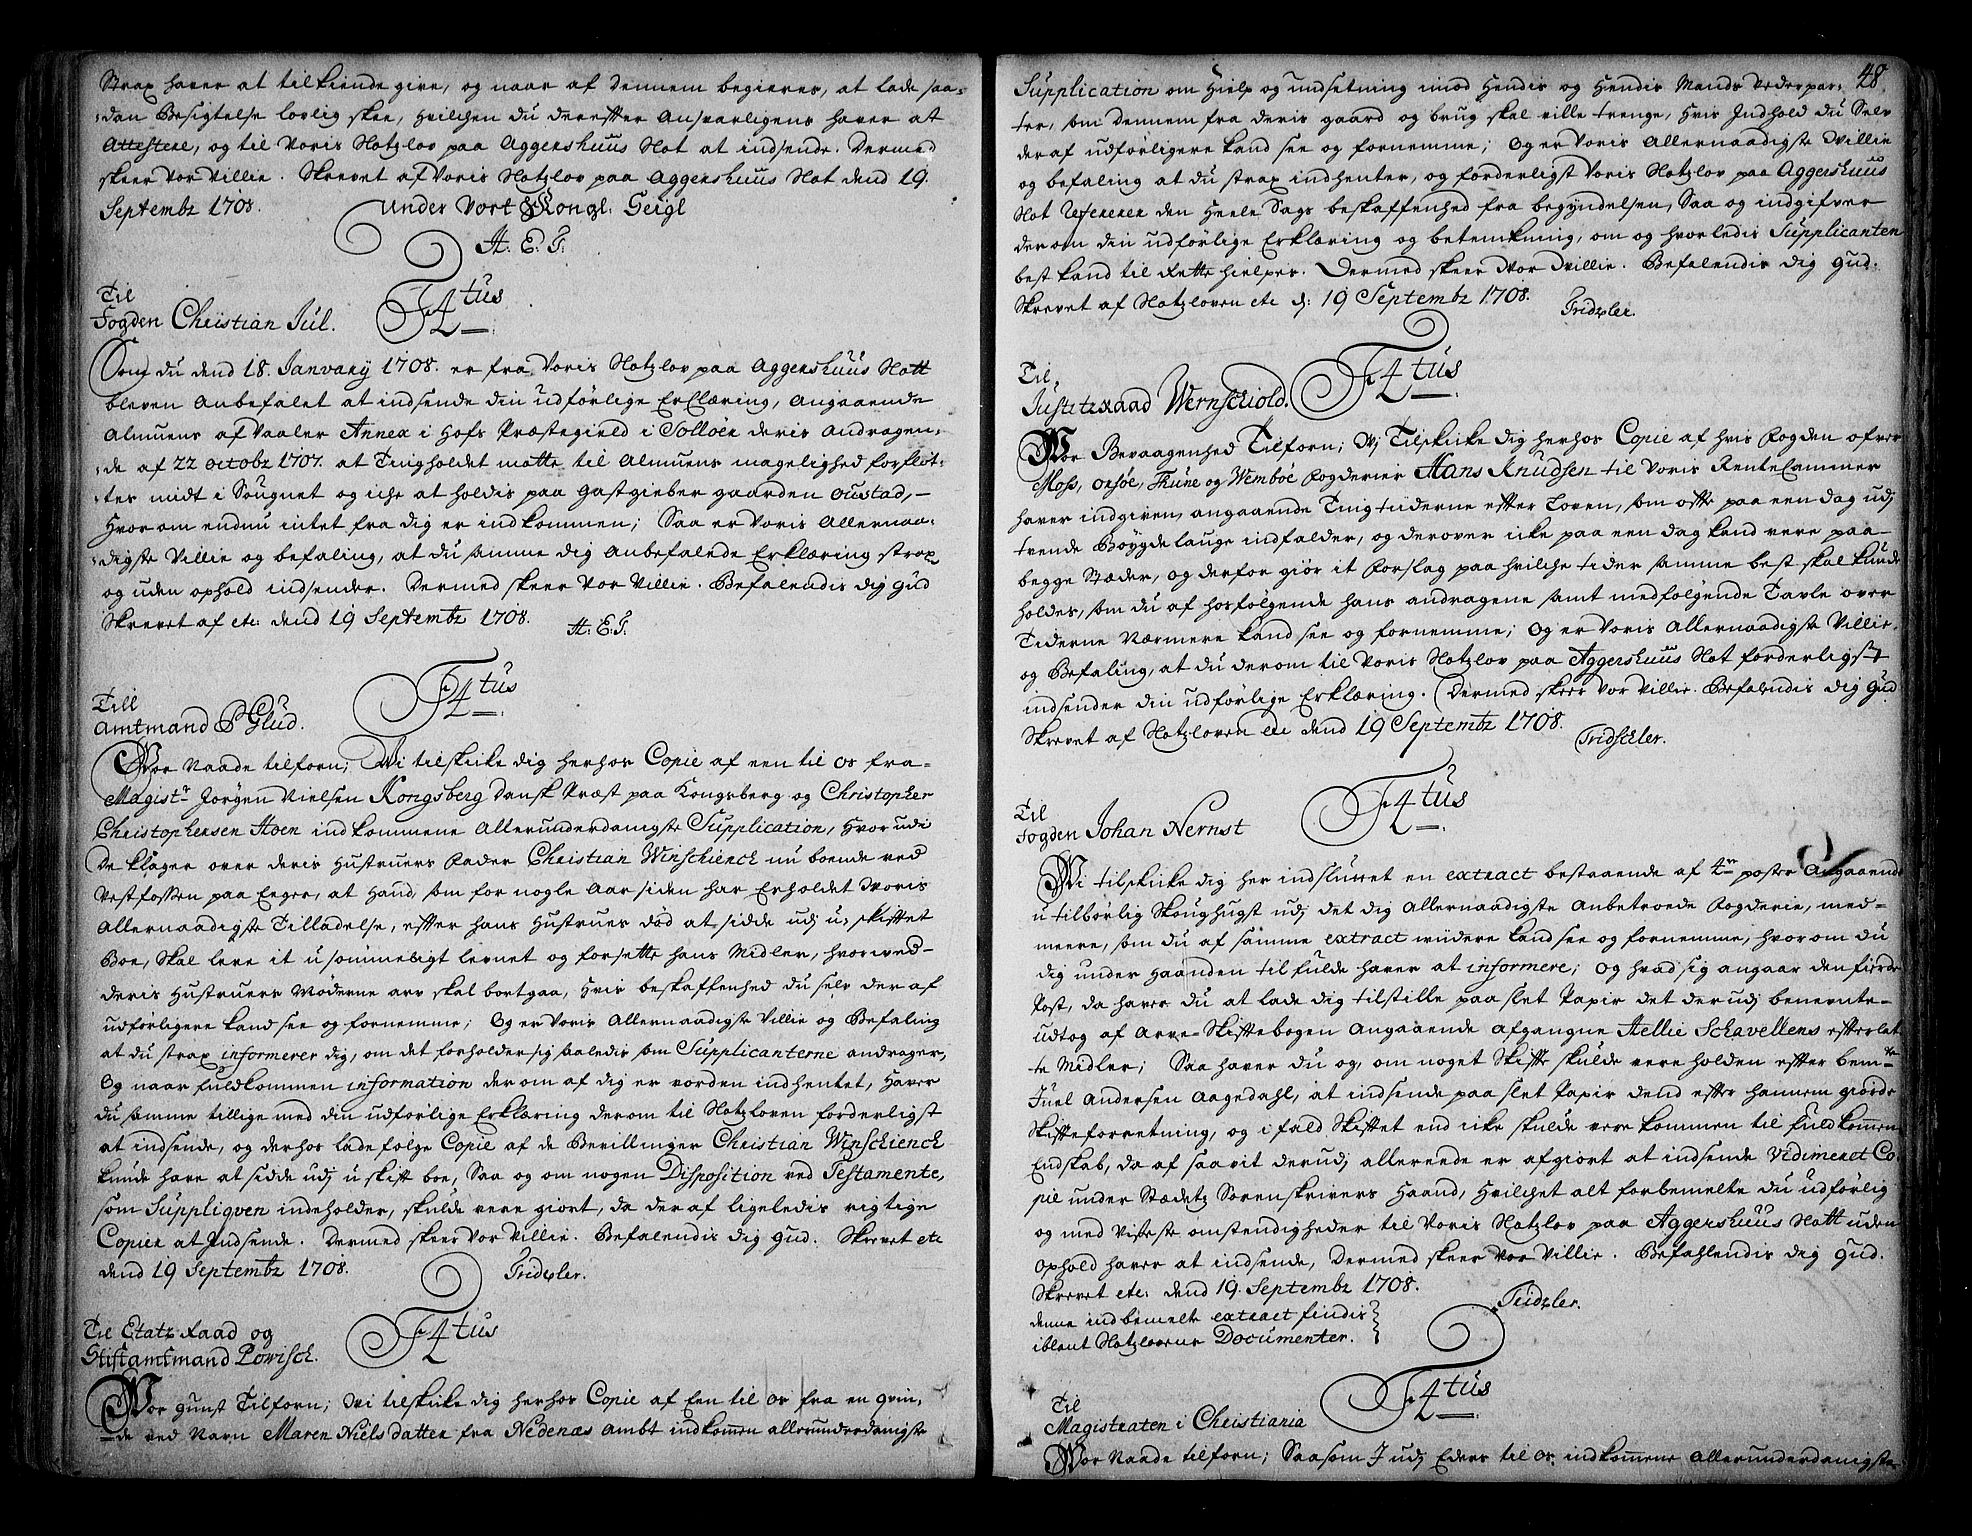 Strax haver at tilkiende give, og naar af dennem begieres, at lade saa-
dan Besigtelse lovlig skee, hvilchen du derefter Ansvarligens haver at
Attestere, og til Voris Slotzlov paa Aggershuus Slot at indsende. Dermed
skeer Vor Villie. Skrevet af Voris Slotzlov paa Aggershuus Slot dend 19.
Septembr 1708. under Vort Kongl: Seigl
H. E. T.
Til
Fogden Christian Jul.
F4tus
Som du dend 18. January 1708. er fra Voris Slotzlov paa Aggershuus Slott
bleven Anbefalet at indsende din udförlige Erclæring, Angaaende
Almuens af Vaaler Annex i Hofs Præstegield i Solloer deris Andragen-
de af 22 octobr 1707. at Tingholdet motte til Almuens magelighed forflöt-
tes midt i Sougnet og iche at holdis paa Gastgieber gaarden oustad,
Hvorom endnu intet fra dig er indkommen; Saa er Voris Allernaa-
digste Villie og befaling, at du samme dig Anbefalede Erklæring strax
og uden ophold indsender. Dermed skeer Vor Villie. Befalendis dig Gud
Skrevet af etc: dend 19 Septembr 1708.
H. E. T.
Till
Amtmand P Glud.
F4tus
Vor Naade tilforn; Wi tilskicke dig herhos Copie af een til os fra
Magistr Jörgen Nielsen Kongsberg Dansk Præst paa Kongsberg og Christopher
Christophersen Hoen indkommene Allerunderdanigste Supplication, Hvorudi
De klager over deris Hustruers Fader Christian Winschienck nu boende ved
Vestfossen paa Eeger, at Hand, som for nogle Aar siden har Erholdet Woris
Allernaadigste Tilladelse, effter hans Hustrues död at sidde udj u-skifftet
Boe, Skal leve it usömmeligt levnet og forsette hans Midler, hvorved
deris Hustruers Möderne arv skal bortgaa, Hvis beskaffenhed du selv der af
udförligere kand see og fornemme; Og er Voris Allernaadigste Villie og Befaling
at du strax informerer dig, om det forholder sig saaledis som Supplicanterne andrager,
Og naar fuldkommen information derom af dig er vorden indhentet, Haver
du samme tillige med din udförlige Erklæring derom til Slotzloven forderligst
at indsende, og derhos lade følge Copie af de Bevillinger Christian Winschienck
kunde have at sidde udj u skift boe, Saa og om nogen Disposition ved Testamente,
som Suppliqven indeholder, skulde vere giort, da der af ligeledis rigtige
Copier at Indsende. Dermed skeer Vor Villie. Befalendis dig Gud. Skrevet etc
dend 19 Septembr 1708.
Tridzler.
Til Etatz Raad og
Stiftamtmand Powisch.
F4tus
Vor gunst Tilforn; Wi tilskicke dig herhos Copie af Een til os fra en qvin-
de ved Navn Maren Niels datter fra Nedenæs Ambt indkommen allerunderdanigste
48.
Supplication om Hielp og indsetning imod Hendis og Hendis Mands Vederpar-
ter, som dennem fra deris gaard og brug skal ville trenge, Hvis Indhold du Selv
der af udförligere kand see og fornemme; Og er Voris Allernaadigste Willie
og befaling at du strax indhenter, og forderligst Voris Slotzlov paa Aggershuus
Slot Refererer den Heele Sags beskaffenhed fra begyndelsen, Saa og indgifver
derom din udförlige Erklæring og betenkning, om og hvorledis Supplicanten
best kand til Rette hielpes. Dermed skeer Wor Willie. Befalendis dig Gud.
Skrevet af Slotzloven etc d: 19 Septembr 1708.
Tridzler.
Til
Justitzraad Wernschiold.
F4tus
Vor Bevaagenhed Tilforn; Wj Tilskicke dig herhos Copie af hvis Fogden ofver
Moss, onsöe, Thune og Wemböe Fogderier Hans Knudsen til Voris RenteCammer
haver indgiven, angaaende Tingtiderne efter Loven, som offte paa een dag udj
tvende Böygdelauge indfalder, og derover icke paa een dag kand vere paa
begge Stæder, og derfor giör it Forslag paa hvilche tider samme best skal kunde
holdes, som du af hosfölgende hans andragene samt medfölgende Tavle over
Tiderne Nærmere kand see og fornemme; Og er Voris Allernaadigste Villie
og Befaling, at du derom til Voris Slotzlov paa Aggershuus Slot forderligst
indsender din udförlige Erklæring. Dermed skeer Vor Villie. Befalendis dig Gud
Skrevet af Slotzloven etc dend 19 Septembr 1708.
Tridscler.
Til
Fogden Johan Nernst
F4tus
Wi tilskicke dig her indsluttet en extract bestaaende af 4re poster Angaaende
utilbörlig Skoughugst udj det dig Allernaadigste Anbetroede Fogderie, med-
meere, som du af samme extract widere kand see og fornemme, hvorom du
dig under Haanden til fulde haver at informere; Og hvad sig angaar den fierde
Post, da haver du at lade dig tilstille paa slet Papir det derudj benevnte
udtog af Arve-Skiftebogen Angaaende afgangne Hellie Schavellens efterlat
te Midler; Saa haver du og, om noget Skifte skulde vere holden effter bemte
Juel Andersen Aagedahl, at indsende paa slet Papir dend effter hannem giorde
Skifteforretning, og ifald Skifftet end icke skulde vere kommen til fuldkommen
Endskab, da af saavit derudj allereede er afgiort at indsende Vidimeret Co
pie under Stædetz Sorenskrivers Haand, Hvilchet alt forbemelte du udförlig
og med Visseste omstendigheder til Voris Slotzlov paa Aggershuus Slott uden
Ophold haver at indsende, Dermed skeer Vor Villie. Befahlendis dig Gud.
Skrevet etc: dend 19. Septembr 1708.
Tridzler.
denne indbemelte extract findis
iblant Slotzlovens Documenter.
Til
Magistraten i Christiania
F4tus
Vor Naade tilforn; Saasom I udj Eders til os indkomne Allerunderdanigste